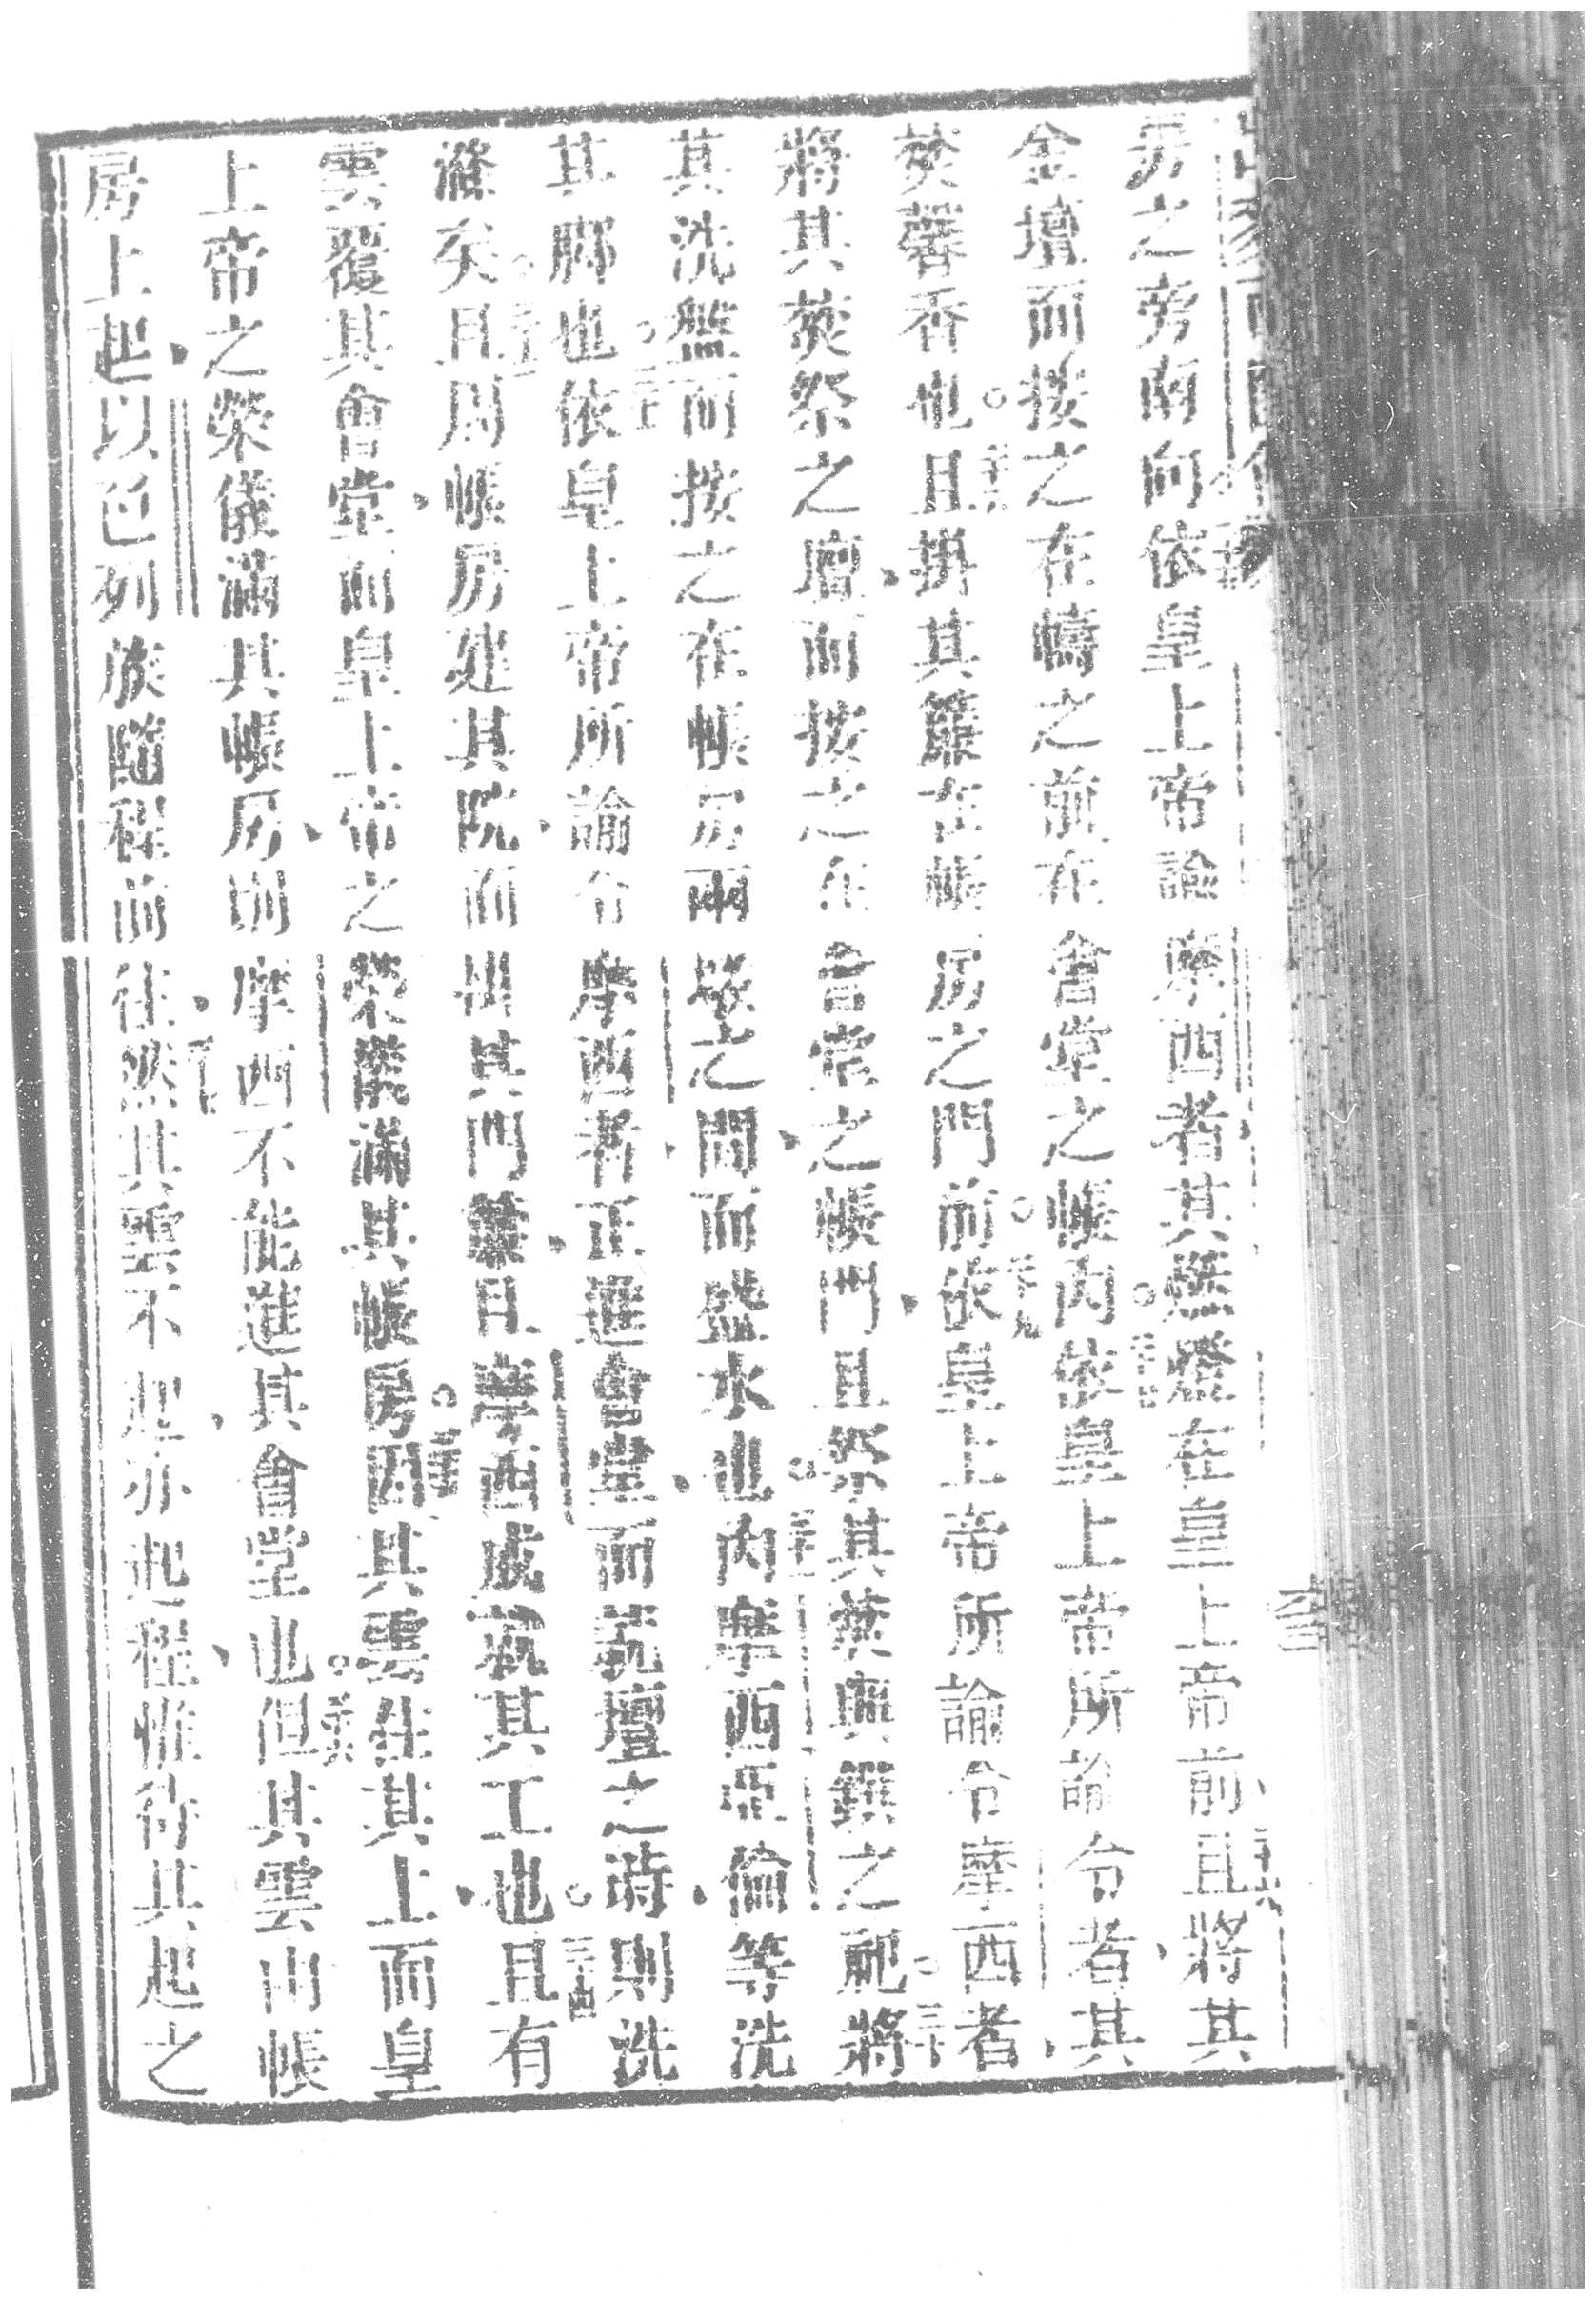 房之旁南向依皇上帝諭摩西者其燃燈在皇上帝前且將其
金壇而按之在幬之前在會堂之帳內依皇上帝所諭令者其
焚馨香也且掛其簾在帳房之門前依皇上帝所諭令摩西者
將其焚祭之壇而按之在會堂之帳門且祭其焚與饌之祀將
其洗盤而按之在帳房兩壇之間而盛水也內摩西亞倫等洗
其脚也依皇上帝所諭令摩西者正進會堂而就壇之時則洗
滌矣且周帳房建其院而掛其門簾且摩西成就其工也且有
雲覆其會堂而皇上帝之榮儀滿其帳房因其雲住其上而皇
上帝之榮儀滿其帳房則摩西不能進其會堂也但其雲由帳
房上起以色列族隨程前往然其雲不起亦起程惟待其起之